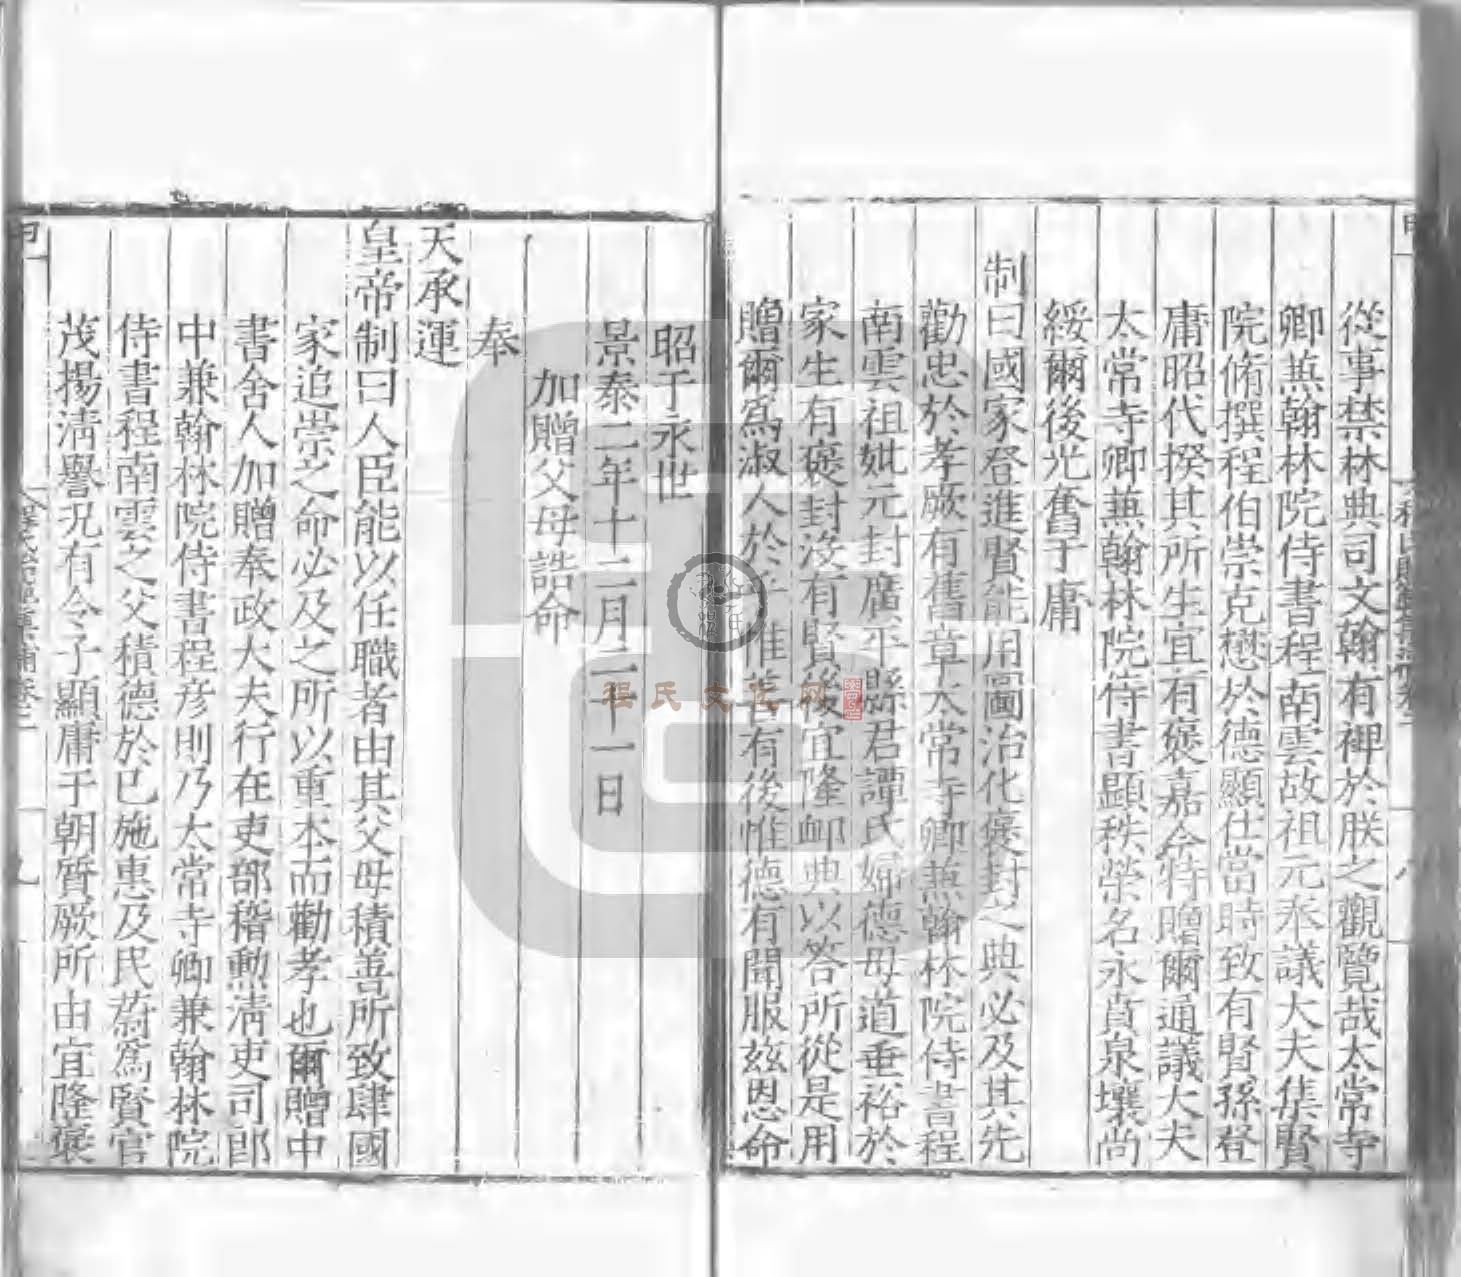 從事禁林典司文翰有裨於朕之觀覽哉太常寺
卿兼翰林院侍書程南雲故祖元奉議大夫集賢
院脩撰程伯崇克懋於德顯仕當時致有賢孫登
庸昭代揆其所生宜有褒嘉今特贈爾通議大夫
太常寺卿兼翰林院侍書顯秩榮名永賁泉壤尚
綏爾後光奮于庸
制曰國家登進賢能用圖治化褒封之典必及其先
勸忠於孝厥有舊章太常寺卿兼翰林院侍書程
南雲祖妣元封廣平縣君譚氏婦德母道垂裕於
家生有褒封沒有賢後宜隆卹典以答所從是用
贈爾爲淑人於乎惟善有後惟德有聞服茲恩命
昭于永世
景泰二年十二月二十一日
加贈父母誥命
奉
天承運
皇帝制曰人臣能以任職者由其父母積善所致肆國
家追崇之命必及之所以重本而勸孝也爾贈中
書舍人加贈奉政大夫行在吏部稽勳清吏司郎
中兼翰林院侍書程彥則乃太常寺卿兼翰林院
侍書程南雲之父積德於己施惠及民蔚爲賢官
茂揚清譽況有令子顯庸于朝質厥所由宜隆褒
程氏文化网